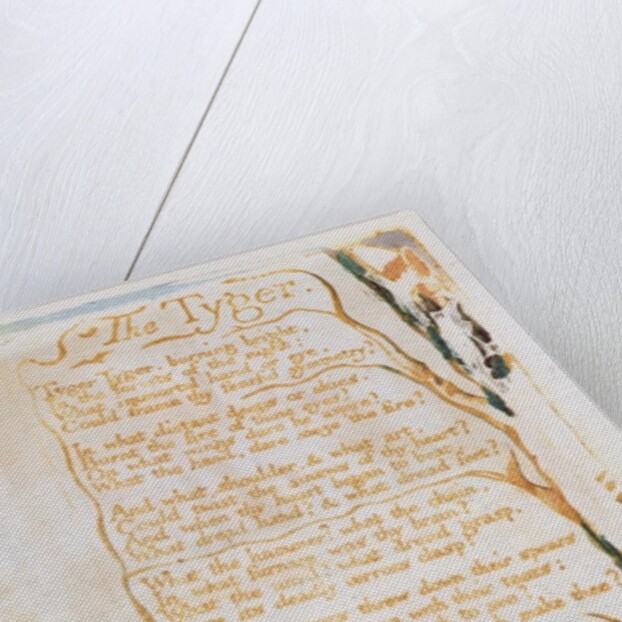 The Tyger.
Tyger Tyger. burning bright,
In the forests of the night:
What immortal hand or eye.
Could frame thy fearful symmetry?
In what distant deeps or skies.
Burnt the fire of thine eyes?
On what wings dare he aspire?
What the hand, dare sieze the fire?
And what shoulder, & what art,
Could twist the sinews of thy heart?
And when thy heart began to beat,
What dread hand? & what dread feet?
What the hammer? what the chain,
In what furnace was thy brain?
What the anvil? what dread grasp,
Dare its deadly terrors clasp?
threw down their spears
with their tears:
to see?
make thee?